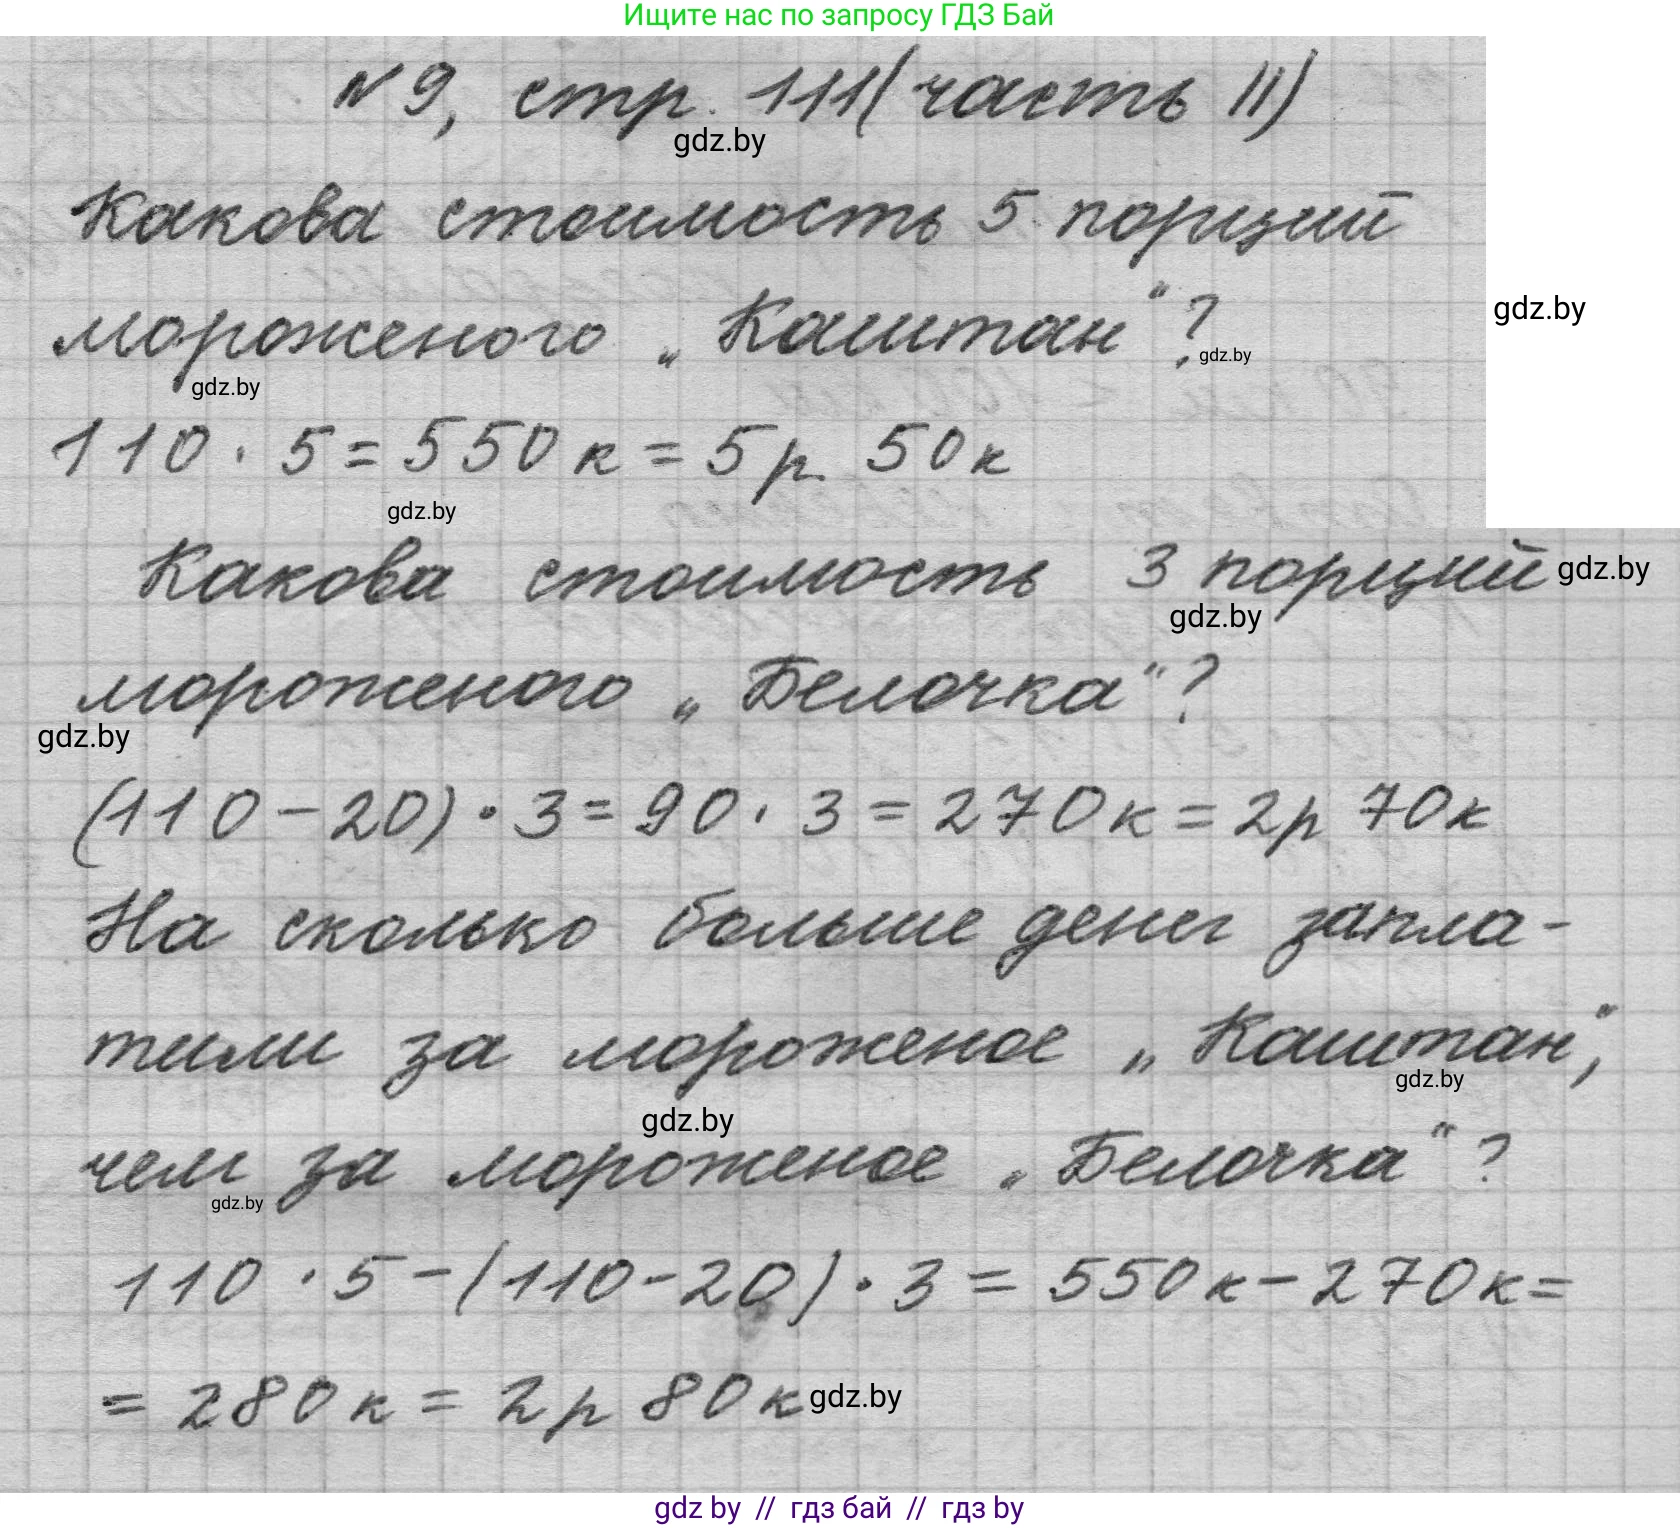 Ищите нас по запросу ГДЗ Бай
N 9, стр. 111 (часть II)
gdz.by
Какова стоимость 5 порций
мороженого „Каштан“?
gdz.by
gdz.by
gdz.by
110 · 5 = 550 к = 5 р 50 к
gdz.by
Какова стоимость 3 порций
gdz.by
gdz.by
мороженого „Белочка“?
gdz.by
(110 - 20) · 3 = 90 · 3 = 270 к = 2 р 70 к
На сколько больше денег запла-
тили за мороженое „Каштан“,
gdz.by
gdz.by
чем за мороженое „Белочка“?
gdz.by
110 · 5 - (110 - 20) · 3 = 550 к - 270 к =
= 280 к = 2 р 80 к
gdz.by
gdz by // гдз бай // гдз by